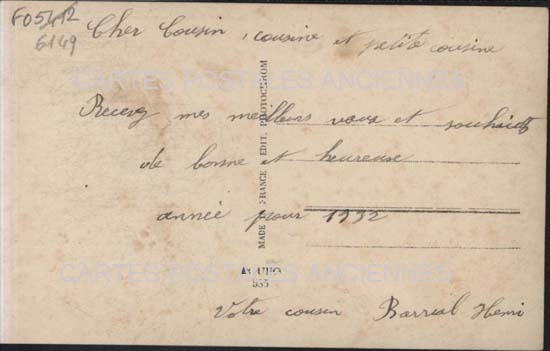 F05412
6149
Cher Cousin, cousine et petite cousine
CARTES POSTALES ANCIENNES
Recevez mes meilleurs vœux et souhaits
de bonne et heureuse
année pour 1932
MADE FRANCE EDIT. PHOTOCHROM
CARTES POSTALES ANCIENNES
935
Votre cousin Barrial Henri